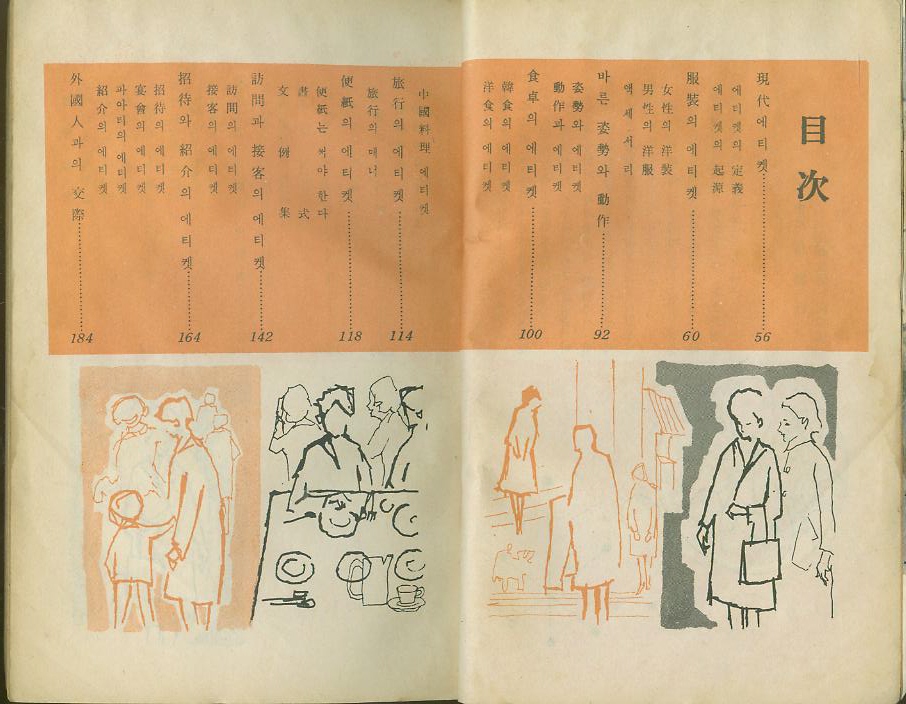 目次
現代에티켓 56
에티켓의 定義
에티켓의 起源
服裝의 에티켓 60
女性의 洋裝
男性의 洋服
액세서리
바른 姿勢와 動作 92
姿勢와 에티켓
動作과 에티켓
食卓의 에티켓 100
韓食의 에티켓
洋食의 에티켓
中國料理 에티켓
旅行의 에티켓 114
旅行의 매너
便紙의 에티켓 118
便紙는 써야 한다
書式
文例集
訪問과 接客의 에티켓 142
訪問의 에티켓
接客의 에티켓
招待와 紹介의 에티켓 164
招待의 에티켓
宴會의 에티켓
파아티의 에티켓
紹介의 에티켓
外國人과의 交際 184